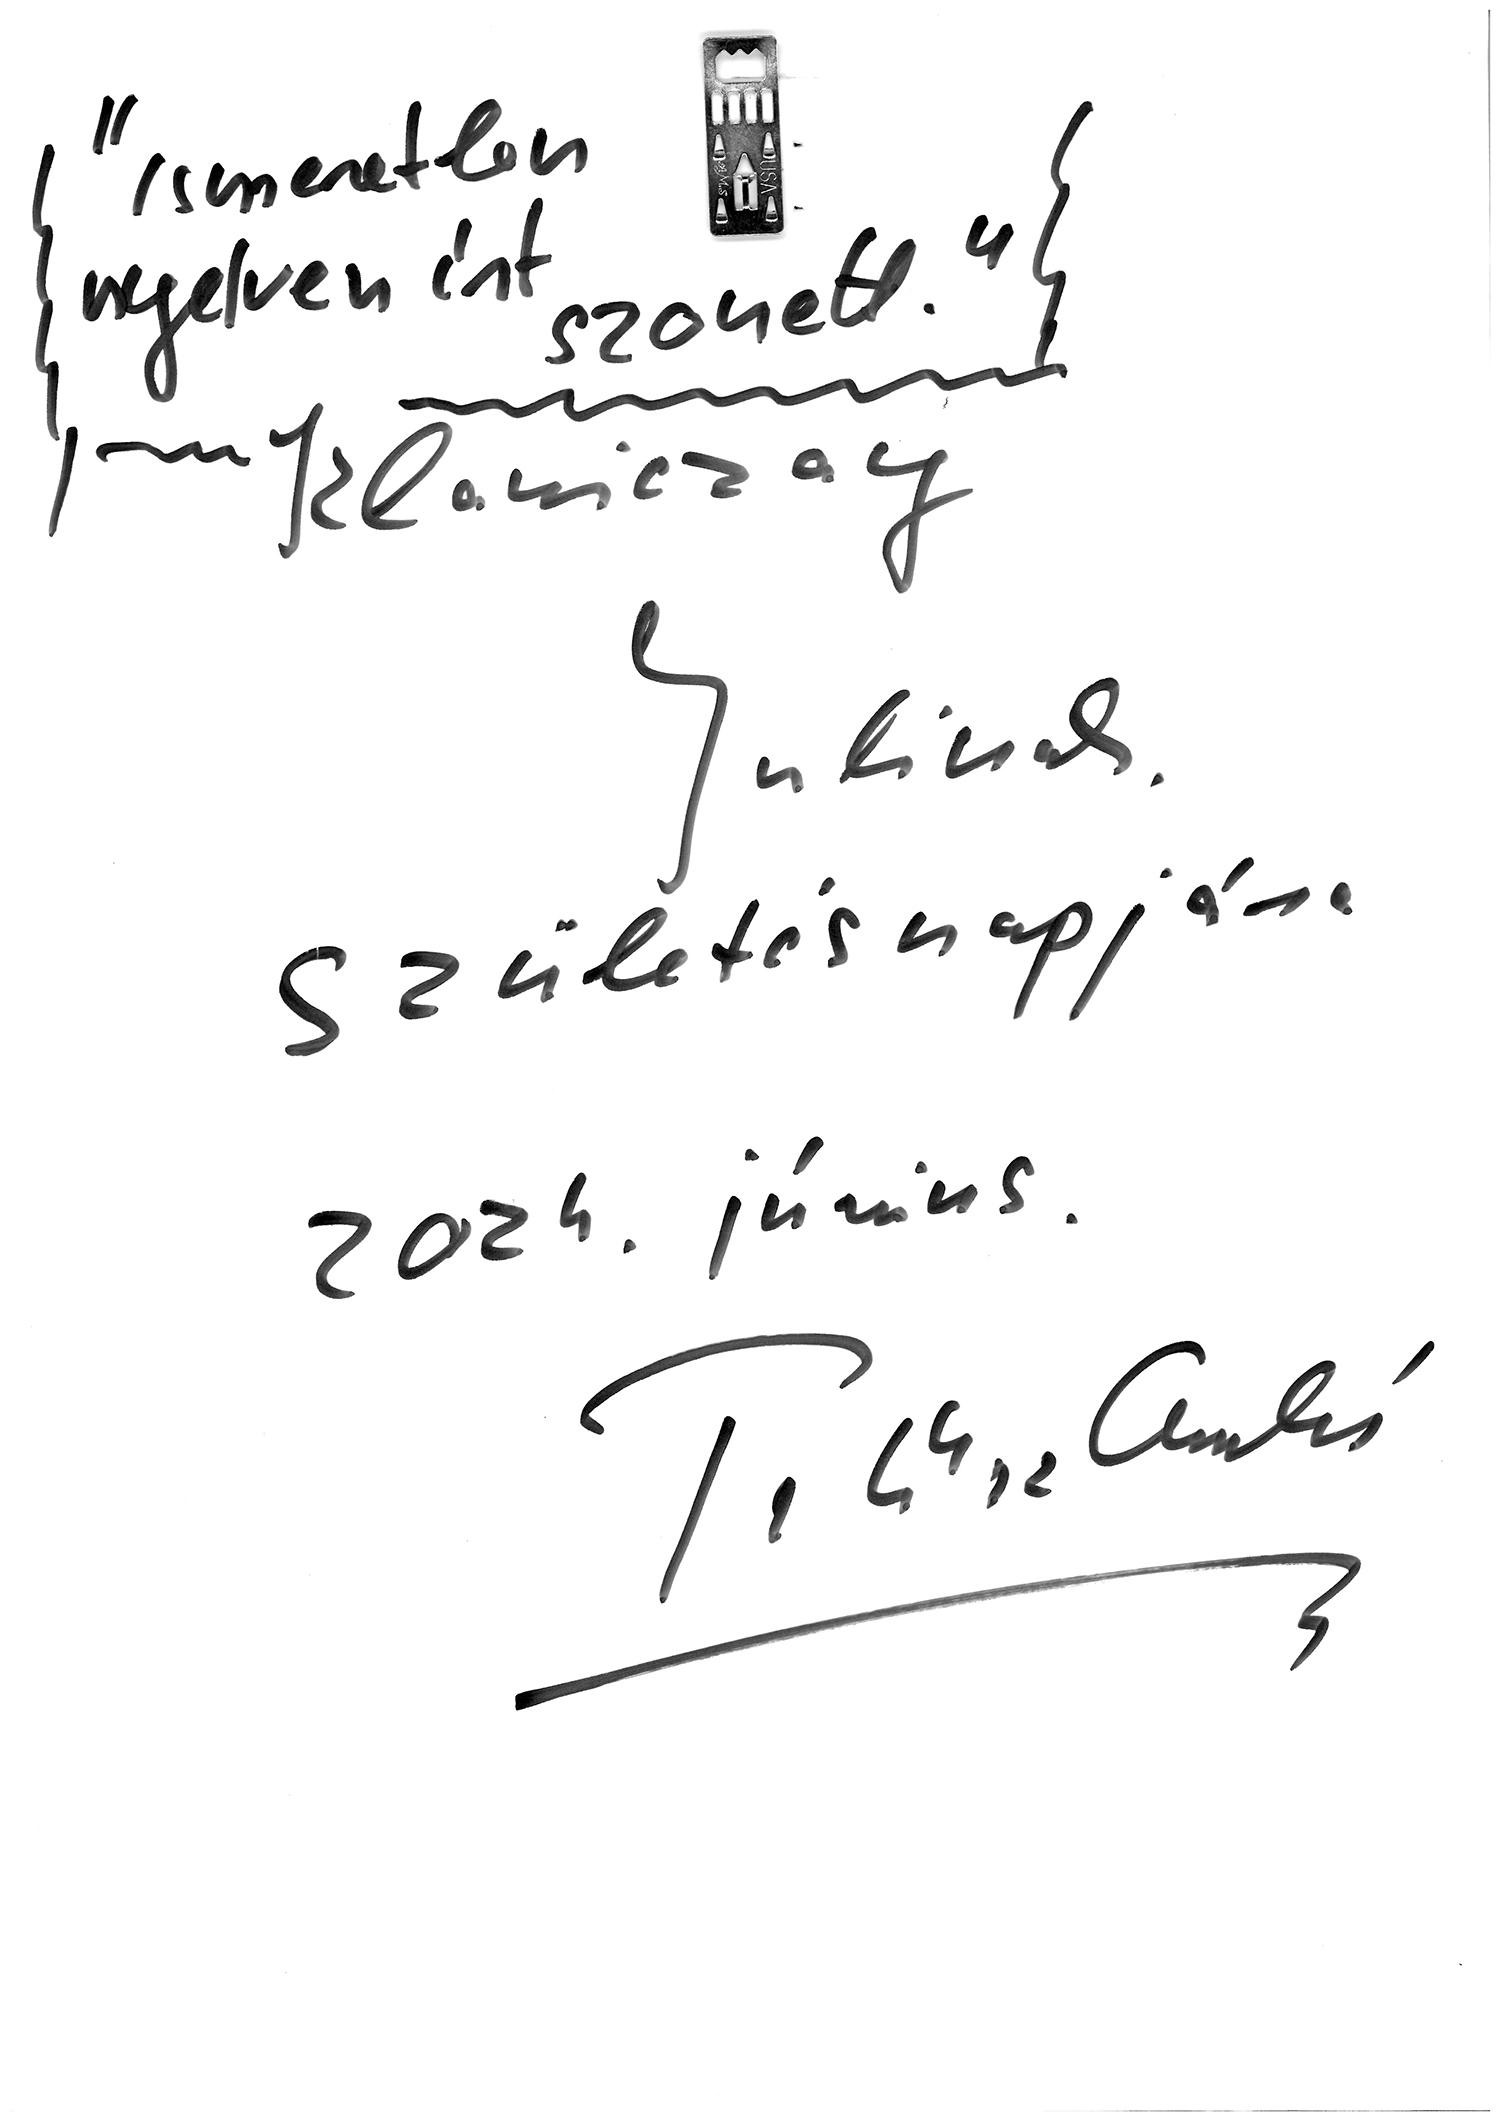 "Ismeretlen
nyelven írt
szonett."
Klaniczay
Julinak.
Születésnapjára
2024. június.
USA